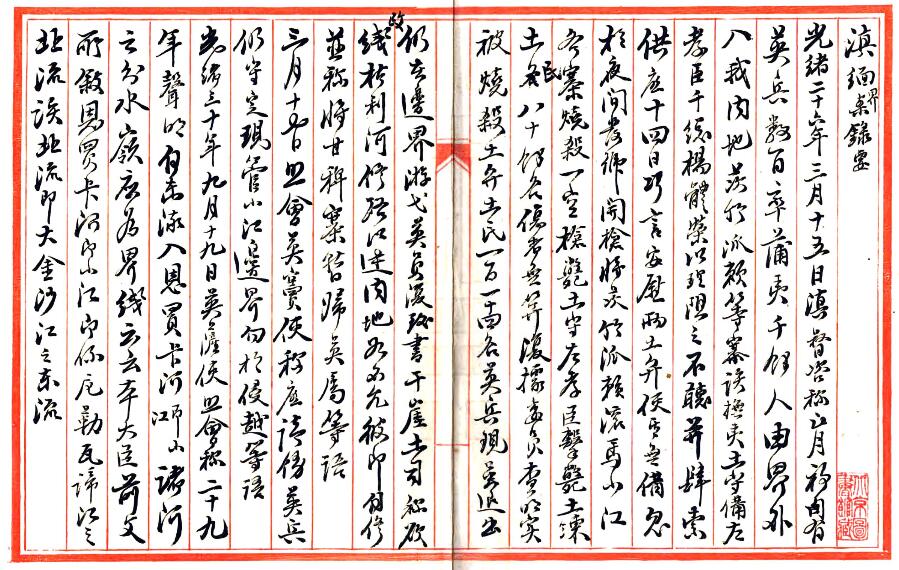 滇緬界案錄要
光緒二十六年三月十五日滇督咨称正月初旬有
英兵數百率蒲夷千餘人由界外
入我内地茨竹派賴等寨該撫夷土守備左
孝臣千總楊體榮以理阻之不聽并肆索
供应十四日巧言安慰兩土弁使無備忽
於夜間發號開槍將茨竹派賴滚馬小江
各寨燒殺一空槍斃土守左孝臣擊斃土練
土民八十餘名傷者無算復據委員查明實
被燒殺土弁土民一百一十四名英兵現退出
仍在邊界游弋英員復致書干崖土司
扒利河修路江進内地如不允彼即自修
並称將甘稗寨暫歸英属等語
三月十五日照會英竇使称应請傳英兵
仍守定現管小江邊界勿相侵越等語
光緒三十年九月十九日英薩使照會称二十九
年聲明自東流入恩買卡河即小江諸河
之分水嶺应为界綫云云本大臣前文
所敘恩買卡河即小江即係厄勒瓦諦江之
北流該北流即大金沙江之東流
北京圖書館藏